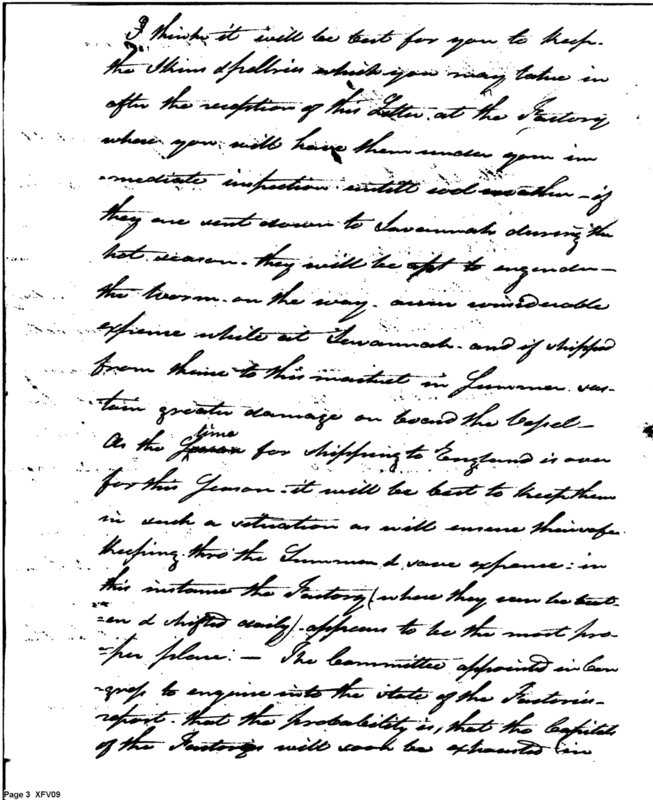 I think it will be best for you to keep
the Skins & peltries which you may take in
after the reception of this Letter. at the Factory
where you will have them under your im
=mediate inspection untill cool weather - if
they are sent down to Savannah during the
hot season - they will be apt to engender -
the worm. on the way. accrue considerable
expence while at Savannah - and if shipped
from thence to this market in Summer. sus-
tain greater damage on board the Vessel -
As the time for shipping to England is over
for this Season - it will be best to keep them
in such a situation as will ensure their safe
keeping thro the Summer & save expence: in
this instance the Factory (where they can be beat-
=en & shifted daily) appears to be the most pro-
=per place: - The Committee appointed in Con
=gress to enquire into the state of the Factories -
report - that the probability is, that the Capitals
of the Factories will soon be exhausted in
Page 3 XFV09